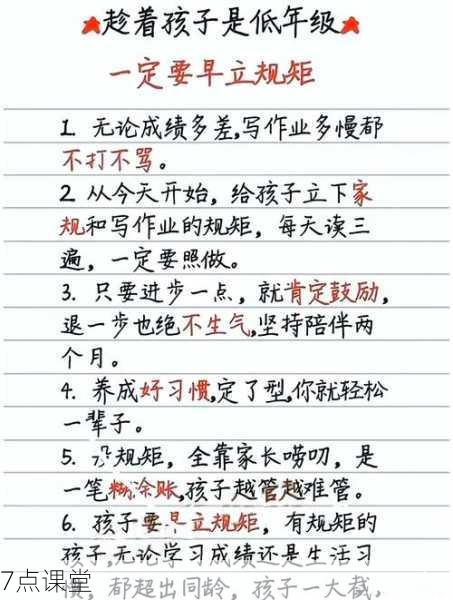 趁着孩子是低年级
一定要早立规矩
1. 无论成绩多差,写作业多慢都
不打不骂。
2. 从今天开始，给孩子立下家
规和写作业的规矩，每天读三
遍，一定要照做。
3. 只要进步一点，就肯定鼓励,
退一步也绝不生气,坚持陪伴两
个月。
4. 养成好习惯,定了型,你就轻松
一辈子。
5. 没规矩，全靠家长唠叨，是
一笔糊涂账,孩子越管越难管。
6. 孩子要早立规矩，有规矩的
孩子,无论学习成绩还是生活习
惯，都超出同龄，孩子一大截,
7点课堂